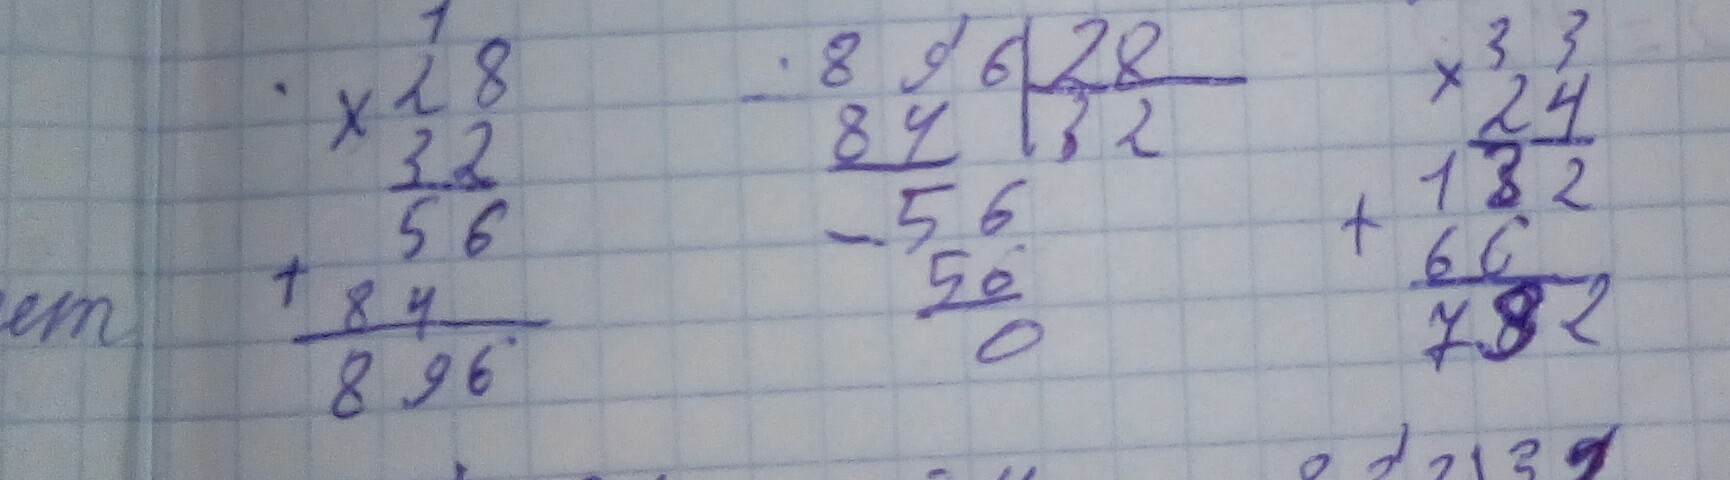 1
× 28
32
56
+ 84
896
- 896 | 28
84 | 32
- 56
56
0
× 33
24
132
+ 66
782
ет